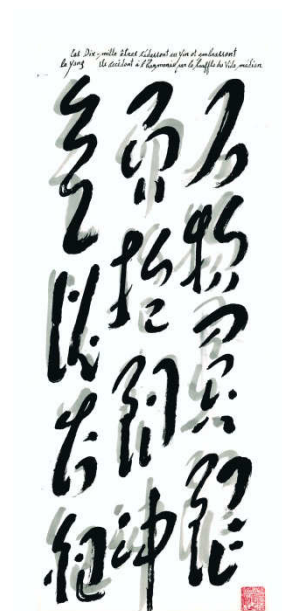 Les Dix-mille êtres s'adossent au Yin et embrassent
le Yang Ils accèdent à l'Harmonie par le Souffle du Vide médian
万物負陰
而抱陽沖
气以為和